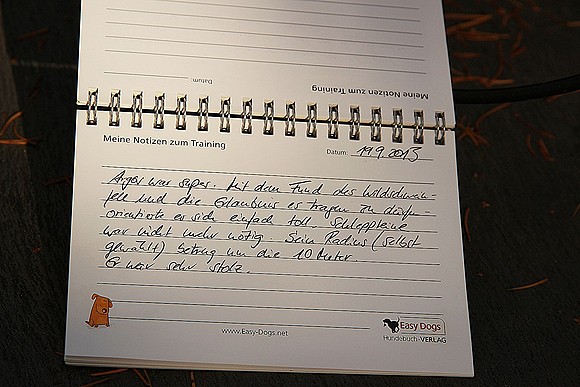 Meine Notizen zum Training
Datum:
Meine Notizen zum Training
Datum: 19.9.2013
Argos war super. Mit dem Fund des Wildschwein-
fell und die Erlaubnis es tragen zu dürfen
orientierte er sich einfach toll. Schleppleine
war nicht mehr nötig. Sein Radius (selbst
gewählt) betrug um die 10 Meter.
Er war sehr stolz
www.Easy-Dogs.net
Easy Dogs
Hundebuch-VERLAG